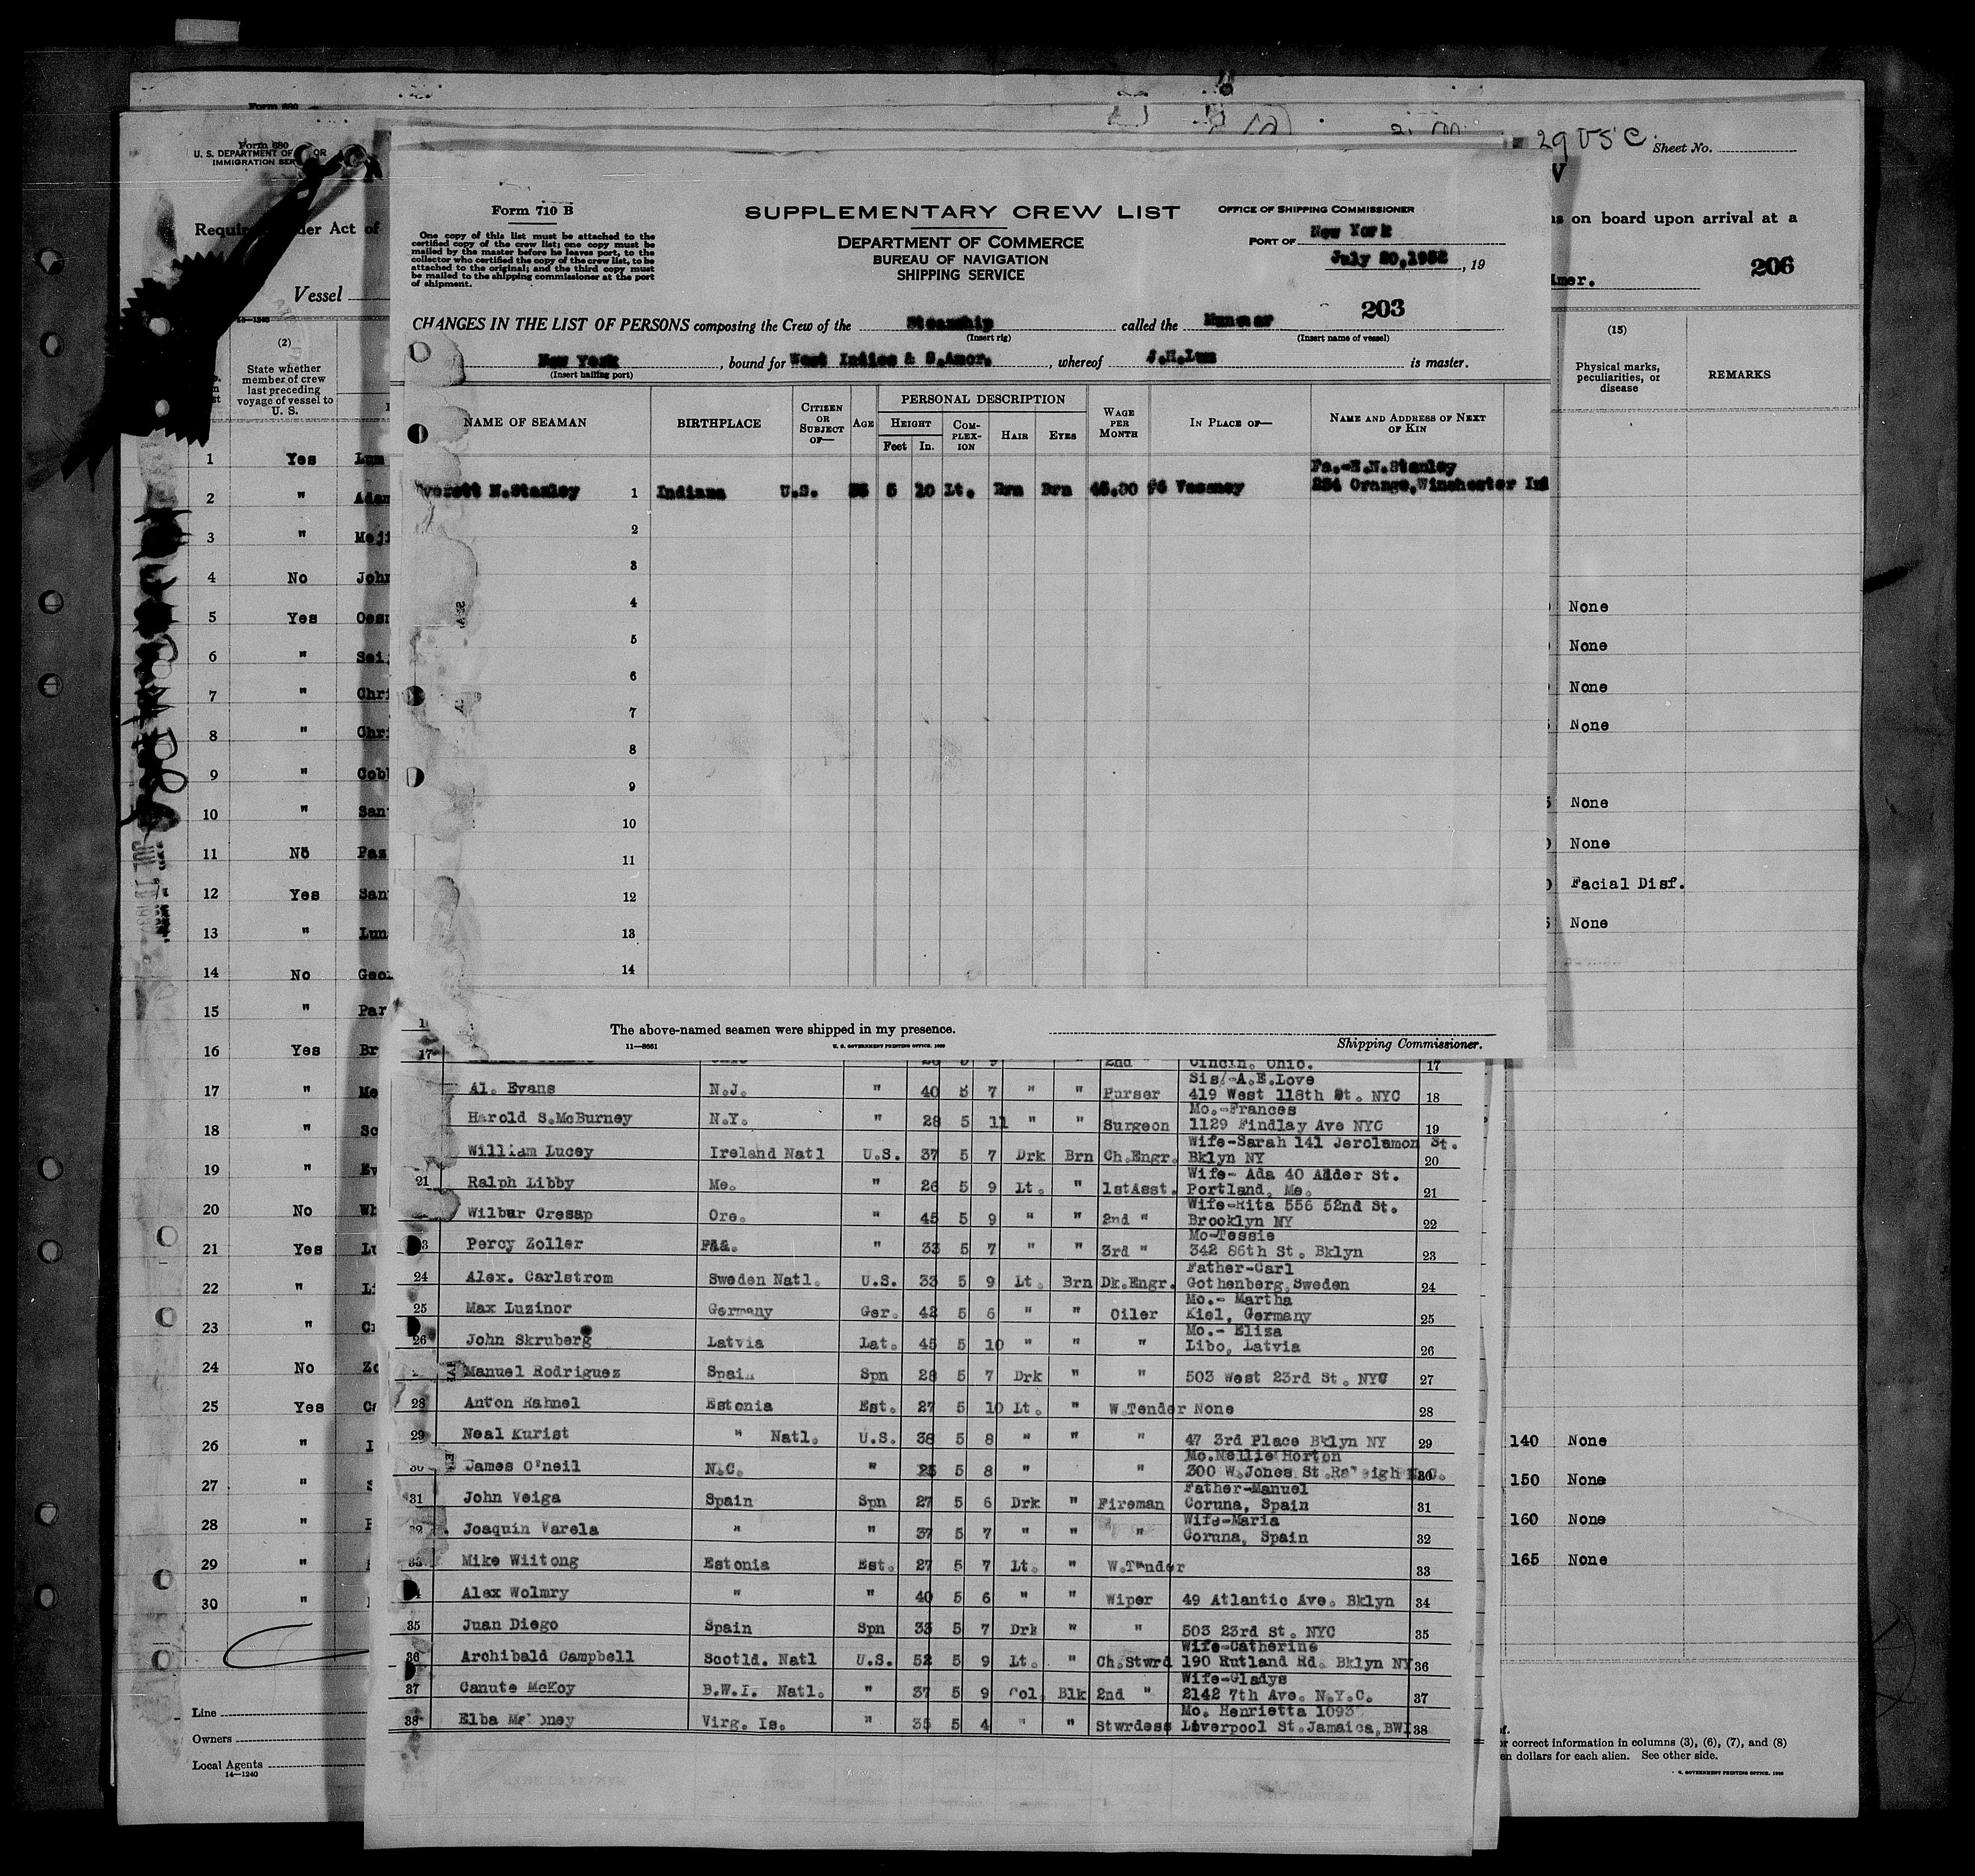 Form 680
Form 680
U. S. DEPARTMENT OF OR
IMMIGRATION SER
29 USC.
Sheet No.
Act of
s on board upon arrival at a
Vessel
206
(2)
State whether
member of crew
last preceding
voyage of vessel to
U. S.
(15)
Physical marks,
peculiarities, or
disease
REMARKS
Form 710 B
One copy of this list must be attached to the
certified copy of the crew list; one copy must be
mailed by the master before he leaves port, to the
collector who certified the copy of the crew list, to be
attached to the original; and the third copy must
be mailed to the shipping commissioner at the port
of shipment.
SUPPLEMENTARY CREW LIST
DEPARTMENT OF COMMERCE
BUREAU OF NAVIGATION
SHIPPING SERVICE
OFFICE OF SHIPPING COMMISSIONER
PORT OF New York
July 20,1932, 19
203
CHANGES IN THE LIST OF PERSONS composing the Crew of the Steamship called the
(Insert rig) (Insert name of vessel)
New York, bound for West Indies & S.Amer., whereof J.H.Lum is master.
(Insert hailing port)
NAME OF SEAMAN BIRTHPLACE CITIZEN OR SUBJECT OF— AGE PERSONAL DESCRIPTION HEIGHT Feet In. COMPLEXION HAIR EYES WAGE PER MONTH IN PLACE OF— NAME AND ADDRESS OF NEXT OF KIN
Fa.-E.N.Stanley
verett N.Stanley 1 Indiana U.S. 5 10 Lt. Brn Brn Vacancy 234 Orange,Winchester
2
3
4
5
6
7
8
9
10
11
12
13
14
The above-named seamen were shipped in my presence.
11—8661
U. S. GOVERNMENT PRINTING OFFICE
Shipping Commissioner.
1 Yes Lum
2 " Adam
3 " Meji
4 No John
5 Yes
6 "
7 " Chri
8 " Chri
9 " Cobl
10 " San
11 No Pas
12 Yes San
13 " Lun
14 No Geo
15 " Par
16 Yes Br
17 " Me
18 " Sc
19 " Ev
20 No Wh
21 Yes Lu
22 " Li
23 " Cr
24 No Zo
25 Yes Ca
26 "
27 "
28 "
29 "
30 "
None
None
None
None
None
None
Facial Disf.
None
17 2nd " Cincin. Ohio. 17
Sis/-A.E.Love
Al. Evans N.J. " 40 5 7 " " Purser 419 West 118th St. NYC 18
Mo.-Frances
Harold S.McBurney N.Y. " 28 5 11 " " Surgeon 1129 Findlay Ave NYC 19
Wife-Sarah 141 Jerolamon St.
William Lucey Ireland Natl U.S. 37 5 7 Drk Brn Ch.Engr. Bklyn NY 20
Wife- Ada 40 Alder St.
21 Ralph Libby Me. " 26 5 9 Lt. " 1stAsst. Portland, Me. 21
Wife-Rita 556 52nd St.
Wilbur Cresap Ore. " 45 5 9 " " 2nd " Brooklyn NY 22
Mo-Tessie
Percy Zoller Paa. " 33 5 7 " " 3rd " 342 86th St. Bklyn 23
Father-Carl
24 Alex. Carlstrom Sweden Natl. U.S. 33 5 9 Lt. Brn Dk.Engr. Gothenberg,Sweden 24
Mo.- Martha
25 Max Luzinor Germany Ger. 42 5 6 " " Oiler Kiel, Germany 25
Mo.- Eliza
26 John Skruberg Latvia Lat. 45 5 10 " " " Libo, Latvia 26
Manuel Rodriguez Spain Spn 28 5 7 Drk " " 503 West 23rd St. NYC 27
28 Anton Rahnel Estonia Est. 27 5 10 Lt. " W.Tender None 28
29 Neal Kurist " Natl. U.S. 38 5 8 " " " 47 3rd Place Bklyn NY 29
Mo.Nellie Horton
30 James O'neil N.C. " 25 5 8 " " 300 W.Jones St.Raleigh N.C. 30
Father-Manuel
31 John Veiga Spain Spn 27 5 6 Drk " Fireman Coruna, Spain 31
Wife-Maria
32 Joaquin Varela " " 37 5 7 " " " Coruna, Spain 32
33 Mike Wiitong Estonia Est. 27 5 7 Lt. " W.Tender 33
Alex Wolmry " " 40 5 6 " " Wiper 49 Atlantic Ave. Bklyn 34
35 Juan Diego Spain Spn 33 5 7 Drk " " 503 23rd St. NYC 35
Wife-Catherine
36 Archibald Campbell Scotld. Natl U.S. 52 5 9 Lt. " Ch.Stwrd 190 Rutland Rd. Bklyn NY 36
Wife-Gladys
37 Canute McKoy B.W.I. Natl. " 37 5 9 Col. Blk 2nd " 2142 7th Ave. N.Y.C. 37
Mo. Henrietta 1093
38 Elba Virg. Is. " 35 5 4 " " Stwrdess Liverpool St.Jamaica,BWI 38
140 None
150 None
160 None
165 None
Line
Owners
Local Agents
14—1240
or correct information in columns (3), (6), (7), and (8)
en dollars for each alien. See other side.
GOVERNMENT PRINTING OFFICE